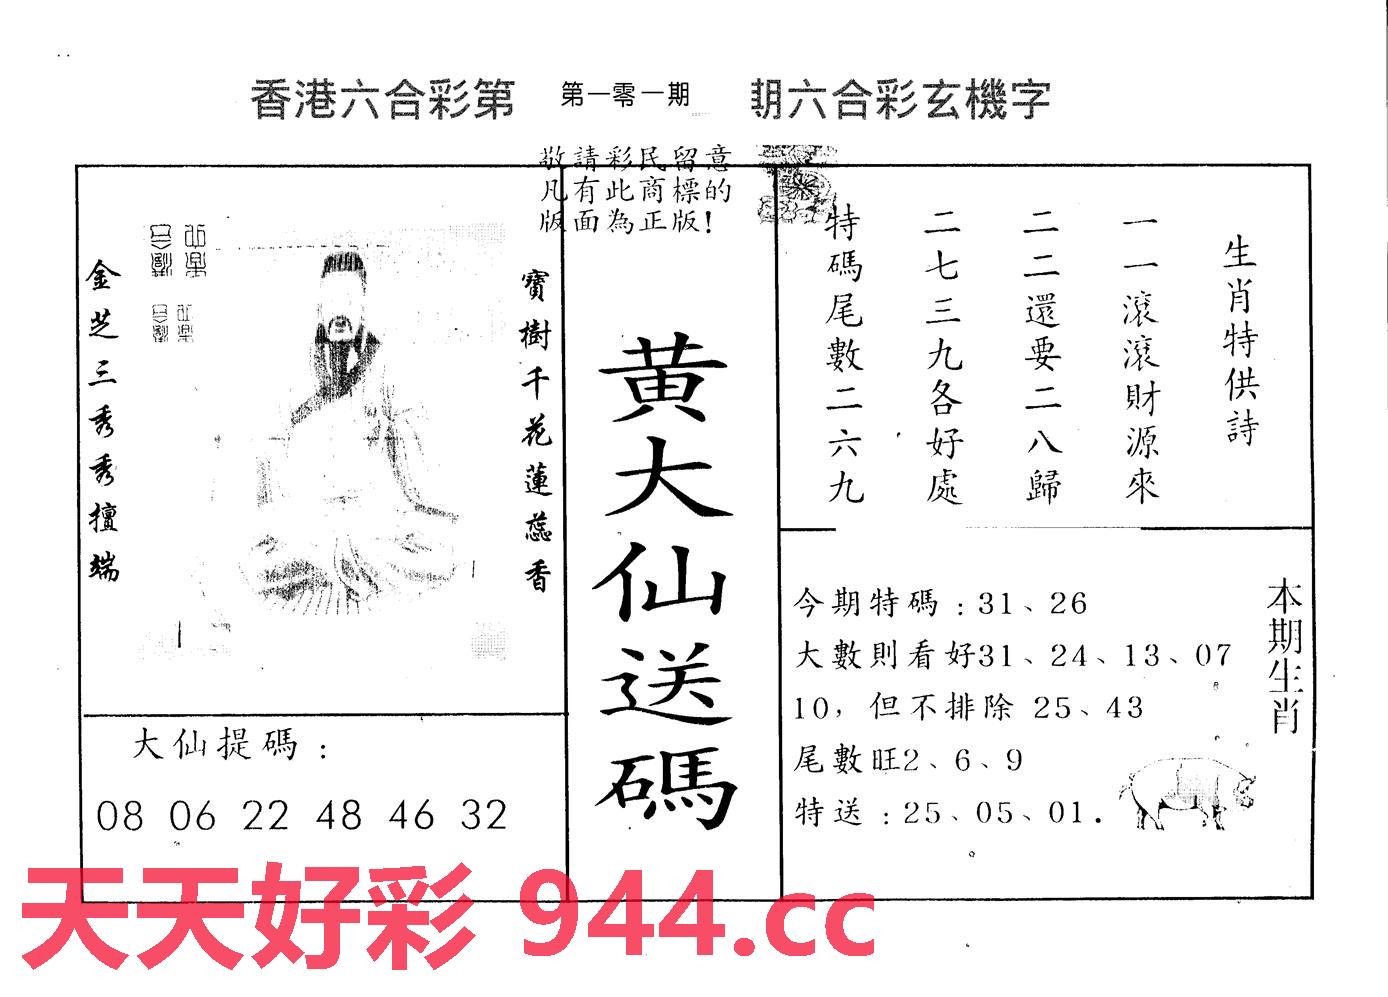 香港六合彩第 第一零一期 期六合彩玄機字
敬請彩民留意
凡有此商標的
版面為正版!
寶樹千花蓮蕊香
金芝三秀秀擅端
大仙提碼:
08 06 22 48 46 32
黄大仙送碼
生肖特供詩
一一滾滾財源來
二二還要二八歸
二七三九各好處
特碼尾數二六九
本期生肖
今期特碼:31、26
大數則看好31、24、13、07
10,但不排除 25、43
尾數旺2、6、9
特送:25、05、01.
天天好彩 944.cc